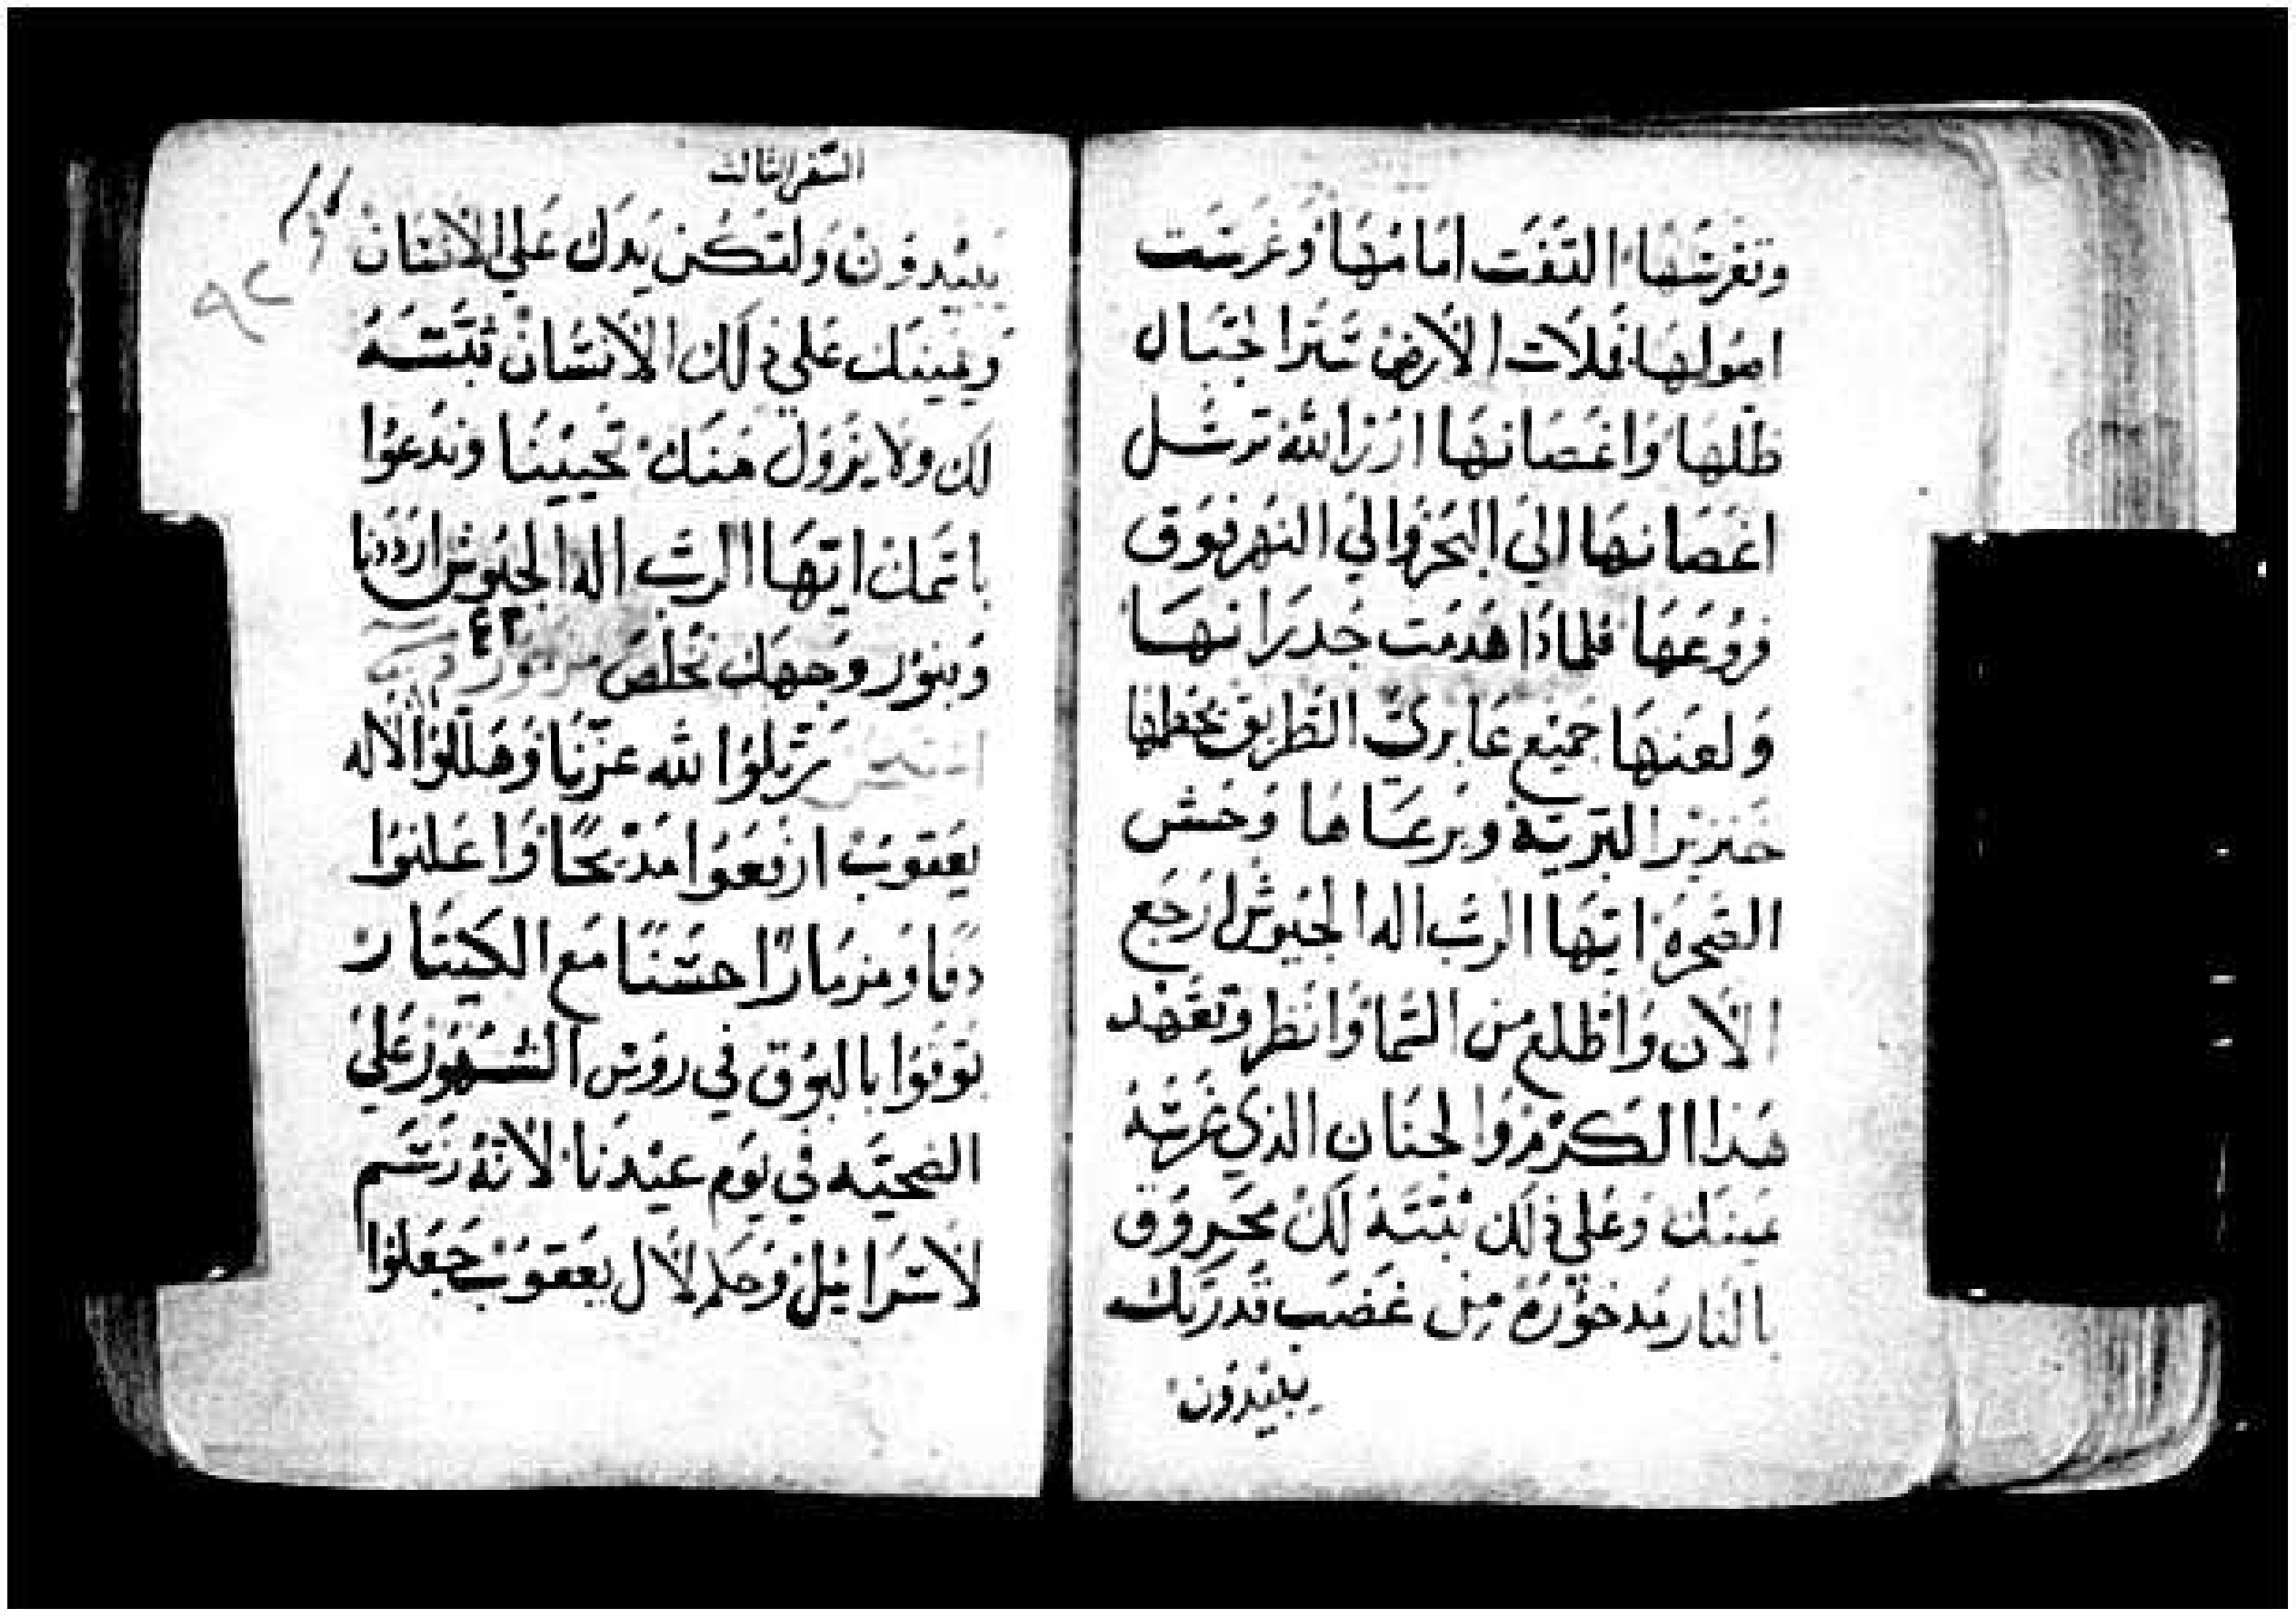 وتغرسَهَا التفَت امَامَهَا وغرسَت
اصُولهَا فملات الارض سَترا لجبَال
ظلهَا وَاغصَانهَا ارز الله ترسُل
اغصَانهَا اليَ البَحر والي النهر فوق
فروُعَهَا فلماذا هَدمَت جُدرَانهَا
وَلعَنهَا جَميع عَابري الطريق
خنزير البَرّية ويرعَاهَا وَحش
الصَحرهْ ايهَا الربّ اله الجيوُش ارجَع
الان وَاطلع مِن السَّما وَانظر وتعَهْد
هَذا الكرمْ وَالجنَان الذي غرسَته
يمينك وَعلي ذلك تبتَهْ لك محروُق
بالنار مدخوُره مِن غضَب قدرتك
يبيْدوُن
السّفر الثالث
يبيْدوُنْ وَلتكن يدَك عَلي الانسَان
ويمينك عَلي ذلك الانسَان ثبتّسَهُ
لك ولا يزَوُل منَك تحييْنَا وندعوُا
باسَمك ايهَا الربّ اله الجيوُش ارددنا
وَبنوُر وَجهَك نخلصَ مزموُر
رَتّلوُا لله عزّنَا وَهَللوُا لاله
يَعقوبْ ارفعَوا مَذبحًا وَاعَلنوُا
دفا وَمزمَارًا حسَنًا مَع الكيتَار
بوّقوُا بالبوُق في روُسْ الشهوُر عَلي
الضحيَه في يوَم عيْدنَا لانهُ رَسَم
لاسَرَائيل وَحكم لال يعَقوَبْ جَعَلوُا